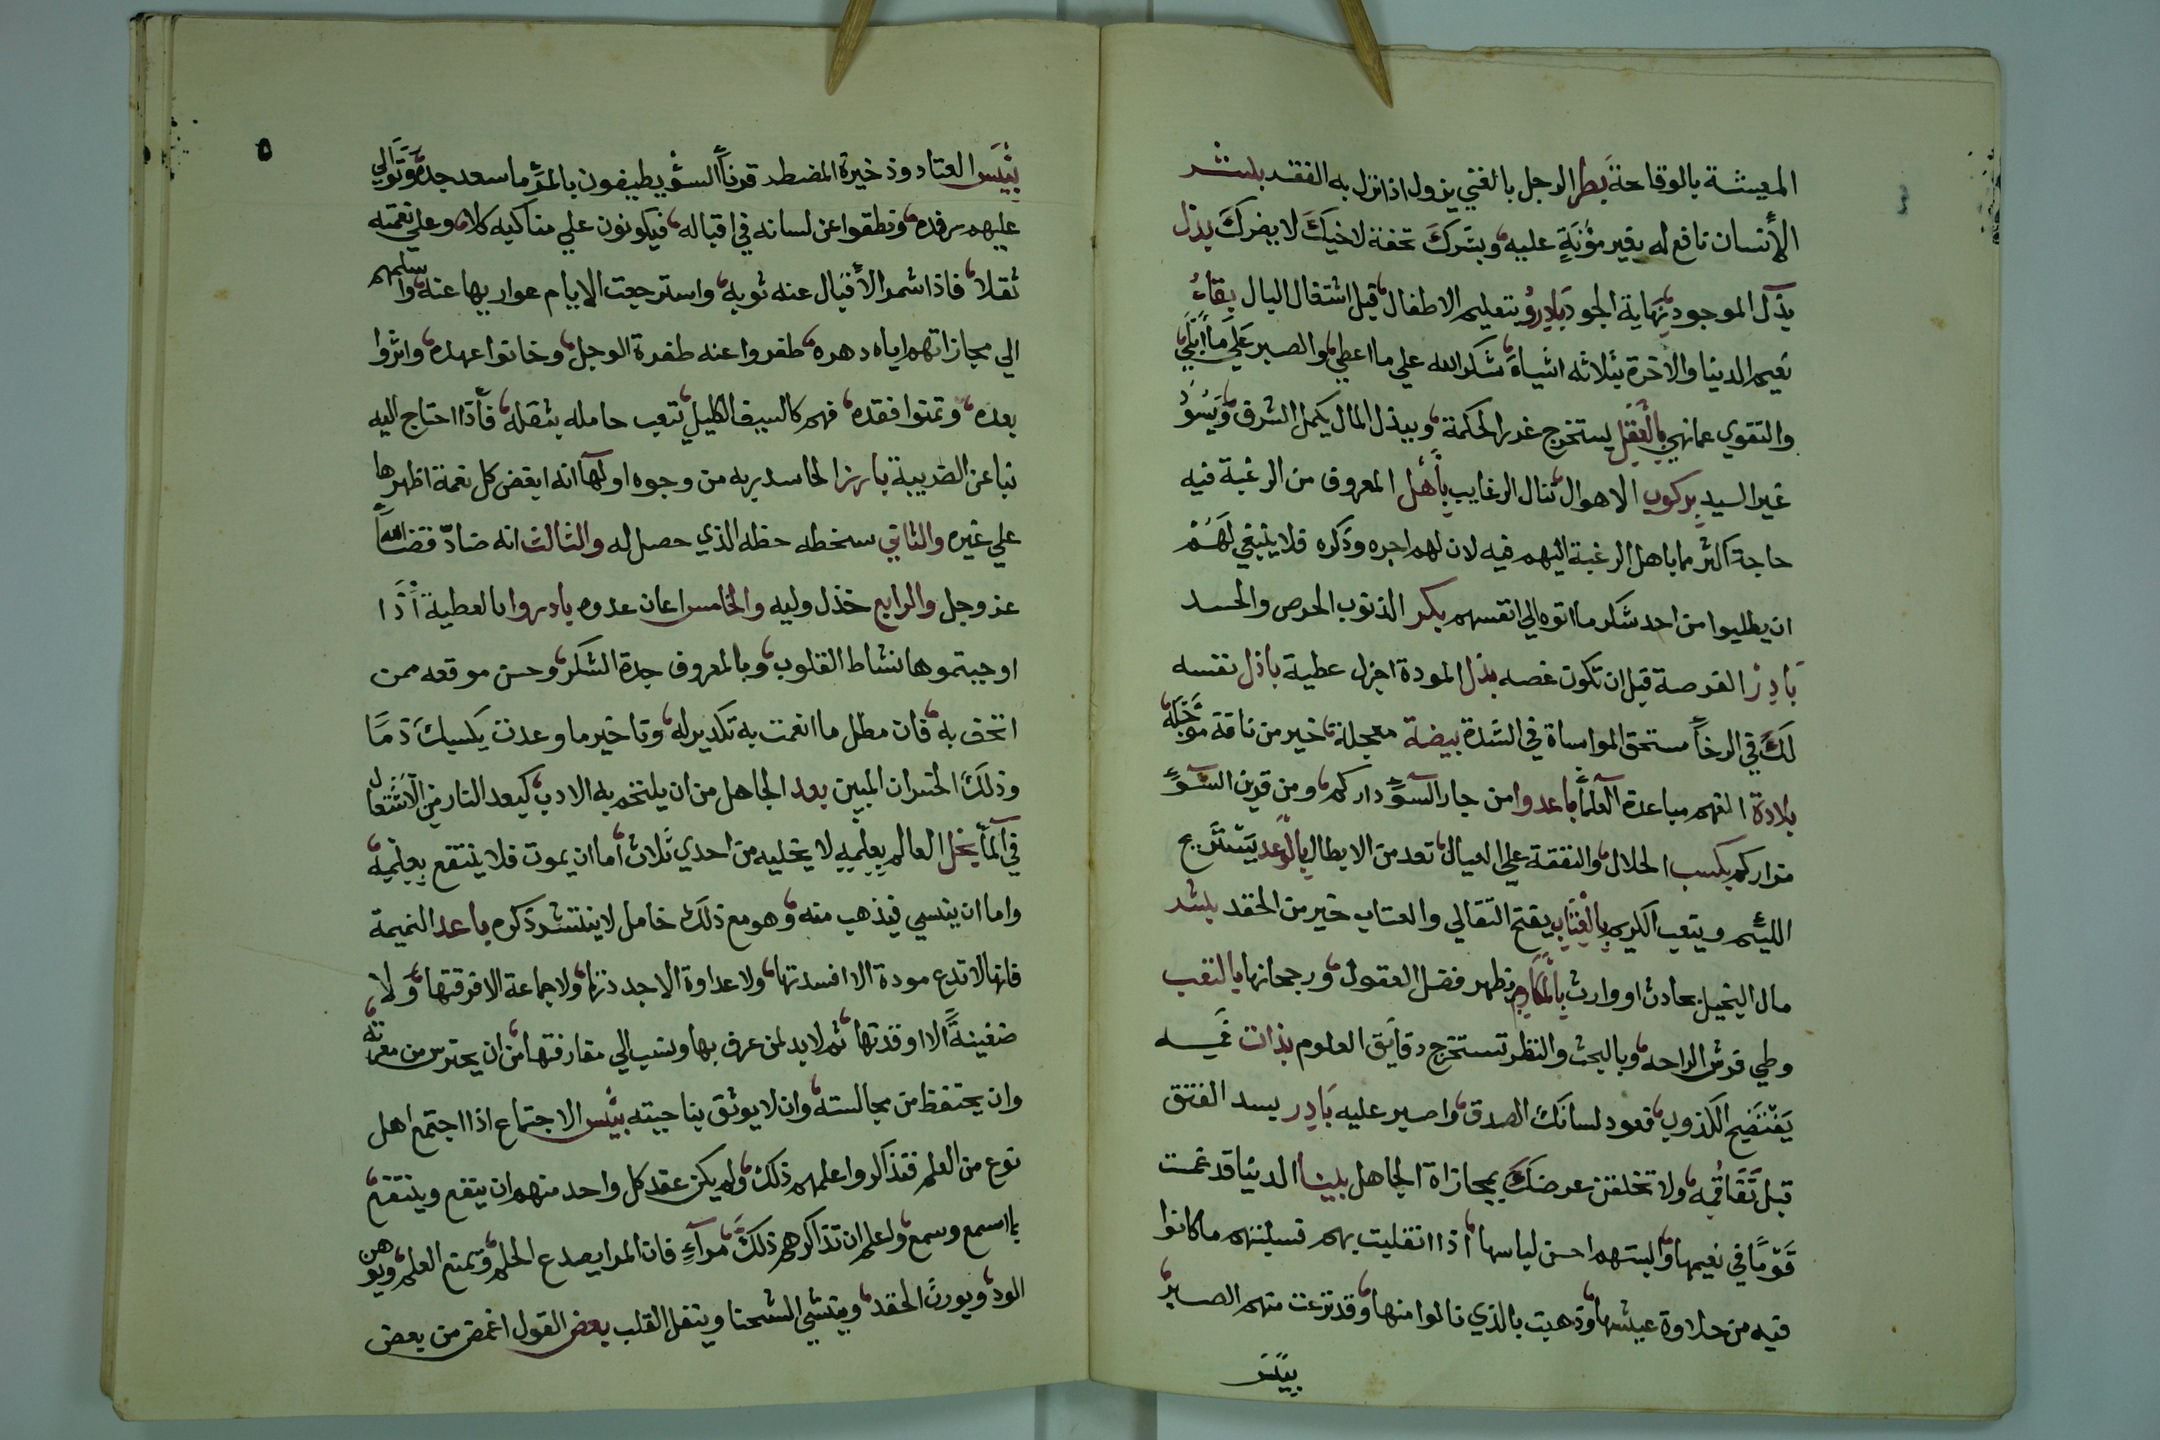 المعيشة بالوقاحة بطر الرجل بالغني يزول اذا نزل به الفقد بلشر
الأنسان نافع له بغير مؤنةٍ عليه وبشرك تحفة لاخيك لا يضرك بذل
بذل الموجود نهاية الجود بادرو بتعليم الاطفال قبل اشتغال البال بقاء
نعيم الدنيا والاخرة بثلاثه اشياء شكر الله علي ما اعطي والصبر علي ما ابتلي
والتقوي عما نهي بالعقل يستخرج غدر الحكمة وببذل المال يكمل الشرف ويسود
غير السيد بركوب الاهوال تنال الرغايب بأهل المعروف من الرغبة فيه
حاجة اكثر مما باهل الرغبة اليهم فيه لان لهم اجره وذكره فلا ينبغي لهم
ان يطلبوا من احد شكر ما اتوه الي انفسهم بكر الذنوب الحرص والحسد
بادر الفرصة قبل ان تكون غصه بذل المودة اجزل عطية باذل نفسه
لك في الرخأ مستحق المواساة في الشدة بيضة معجلة خير من ناقة مؤجلة
بلادة الفهم مباعدة العلمأ باعدوا من جار السؤ داركم ومن قرين السوء
مزاركم بكسب الحلال والنفقة علي العيال تعد من الابطال بالوعد يستريح
اللئيم ويتعب الكريم بالعتاب يفتح التقالي والعتاب خير من الحقد بلشر
مال البخيل بحادث او وارث بالمكارم تظهر فضل العقول ورجحانها بالتعب
وطي فرش الراحه وبالبحث والنظر تستخرج دقايق العلوم بذات غمه
يفتضح الكذوب فعود لسانك الصدق واصبر عليه بادر بسد الفتق
قبل تفاقمه ولا تخلقن عرضك بمجازاة الجاهل بلينا الدنيا قد غمت
قومًا في نعيمها والبستهم احسن لباسها اذا انقلبت بهم فسلبتهم ما كانوا
فيه من حلاوة عيشها وذهبت بالذي نالوا منها وقد نزعت منهم الصبر
بيئس
٥
بئيس العتاد وذخيرة المضطر قرنأ السؤ يطيفون بالمرء ما سعد جده وتوالي
عليهم رفده ونطقوا عن لسانه في اقباله فيكونون علي مناكيه كلا وعلي نعمته
ثقلا فاذا شمر الأقبال عنه ثوبه واسترجعت الايام عواريها عنه واسلمهم
الي مجازاتهم اياه دهره طفروا عنه طفرة الوجل وخانوا عهده واثروا
بعده وتمنوا فقده فهم كالسيف الكليل تتعب حامله بثقله فأذا احتاج اليه
نبا عن الضريبة بارز الحاسد ربه من وجوه اولها انه ابغض كل نعمة اظهرها
علي غيره والثاني سخطه حظه الذي حصل له والثالث انه ضادّ قضا الله
عز وجل والرابع خذل وليه والخامس اعان عدوه بادروا بالعطية أذا
اوجبتموها نشاط القلوب وبالمعروف جدة الشكر وحسن موقعه ممن
اتحف به فان مطل ما انعمت به تكدير له وتاخير ما وعدت يكسبك ذمًا
وذلك الخسران المبين بعد الجاهل من ان يلتحم به الادب كبعد النار من الاشتعال
في المأ بخل العالم بعلمه لا يخليه من احدي ثلاث أما ان يموت فلا ينتفع بعلمه
واما ان ينسي فيذهب منه وهو مع ذلك خامل لا ينتشر ذكره باعد النميمة
فانها لا تدع مودة الا افسدتها ولا عداوة الا جددتها ولا جماعة الا فرقتها ولا
ضغينةً الا اوقدتها ثم لا بد لمن عرف بها ونسب الي مقارفتها من ان يحترس من معرته
وان يحتفظ من مجالسته وان لا يوثق بناحيته بئس الاجتماع اذا اجتمع اهل
نوع من العلم فتذاكروا علمهم ذلك ولم يكن عقد كل واحد منهم ان ينفع وينتفع
بااسمع وسمع واعلم ان تذاكرهم ذلك مرآءٍ فان المرا يصدع الحلم ويمنع العلم ويوهن
الود ويورث الحقد وينشي الشحنا وينغل القلب بعض القول اغمض من بعض